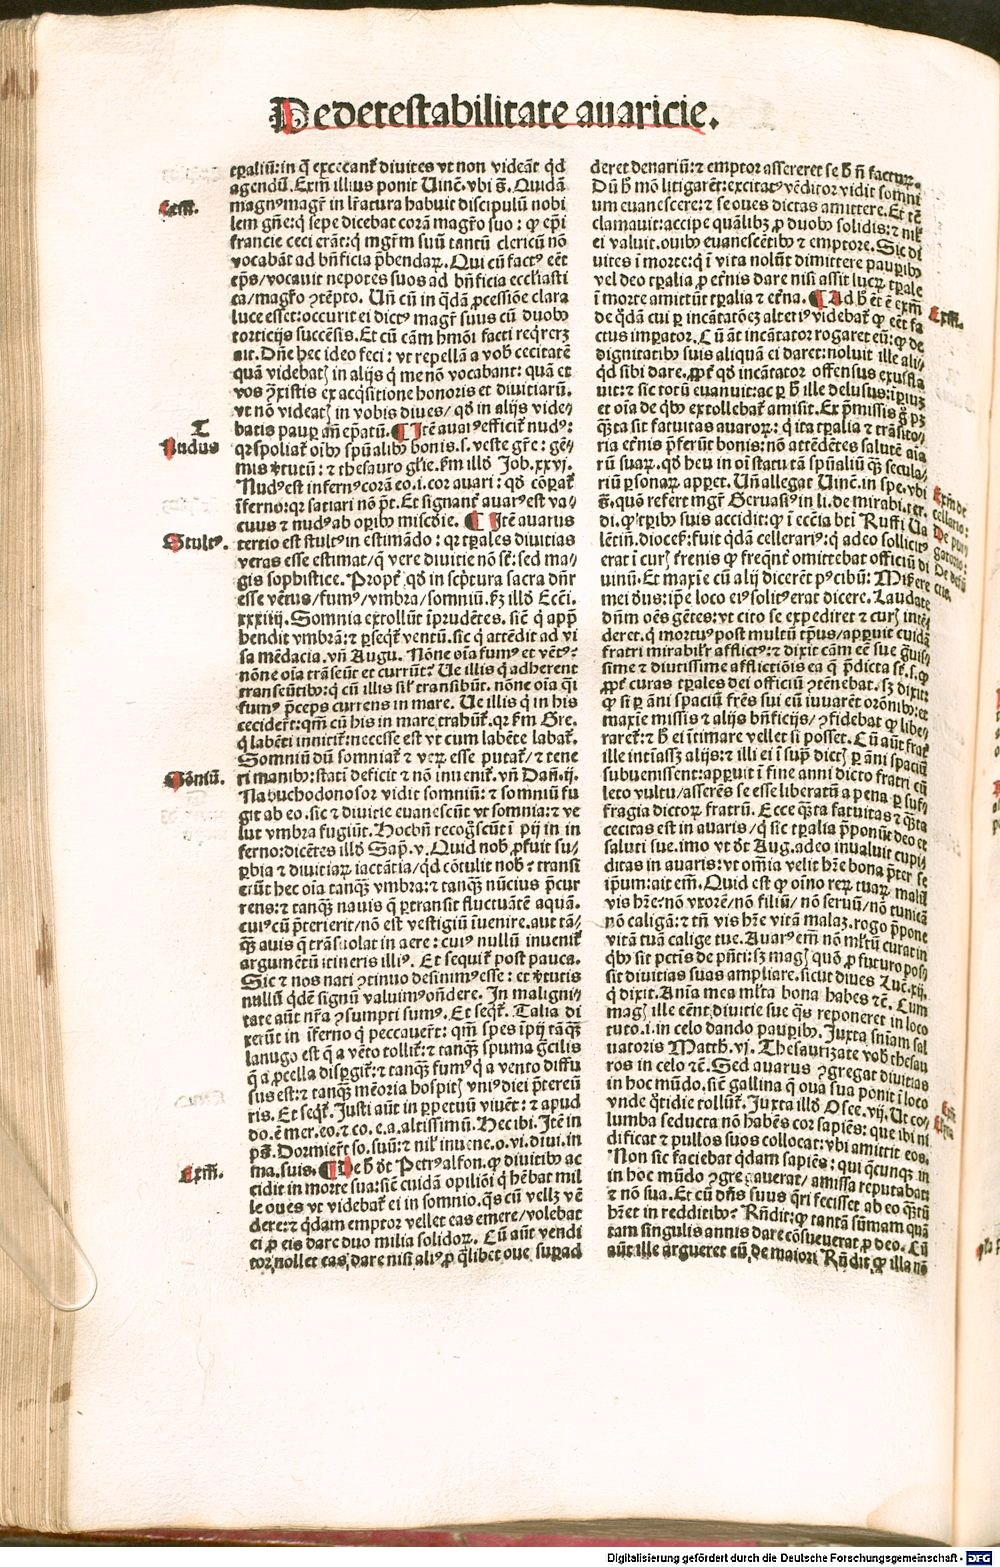 De detestabilitate auaricie.
tꝑaliū: in q̄ excecant̄ diuites vt non videāt qd̄
agendū. Exm̄ illius ponit Uincē. vbi s̄. Quidā
Exm̄.
magnꝰ magr̄ in lr̄atura habuit discipulū nobi
lem gn̄e: q̄ sepe dicebat corā magr̄o suo: ꝙ ep̄i
francie ceci erāt: q̄ mgr̄m suū tantū clericū nō
vocabāt ad bn̄ficia p̄bendaꝝ. Qui cū factꝰ eēt
ep̄s/ vocauit nepotes suos ad bn̄ficia eccl̄iasti
ca/ magr̄o ꝯtēpto. Un̄ cū in q̄dā ꝓcessiōe clara
luce esset: occurrit ei dictꝰ magr̄ suus cū duobꝰ
torticijs succēsis. Et cū cām hmōi facti req̄reret
ait. Dn̄e hec ideo feci: vt repellā a vob̄ cecitatē
quā videbatis in alijs q̄ me nō vocabant: quā et
vos ꝯ̄xistis ex acq̄sitione honoris et diuitiarū.
vt nō videatis in vobis diues/ qd̄ in alijs vide/
batis pauꝑ an̄ ep̄atū. ¶ Itē auarꝰ efficit̄ nudꝰ:
T
Nudus
qꝛ spoliat̄ oībꝰ spūalibꝰ bonis. s. veste gr̄e: gē/
mis v̄tutū: ⁊ thesauro gl̄ie. fm̄ illd̄ Job. xxvj.
Nudꝰ est infernꝰ corā eo. i. cor auari: qd̄ cōꝑat̄
īferno: qꝛ satiari nō pōt. Et signant̄ auarꝰ est va/
cuus ⁊ nudꝰ ab oꝑibꝰ miscd̄ie. ¶ Itē auarus
tertio est stultꝰ in estimādo: qꝛ tꝑales diuitias
Stultꝰ.
veras esse estimat/ q̄ vere diuitie nō st̄: sed ma/
gis sophistice. Propt̄ qd̄ in sc̄ptura sacra dn̄r
esse vētus/ fumꝰ/ vmbra/ somniū. fm̄ illd̄ Ecci.
xxxiiij. Somnia extollūt īprudētes. sic̄ q̄ app̄
hendit vmbrā: ⁊ ꝑseqt̄ ventū. sic q̄ attēdit ad vi
sa mēdacia. vn̄ Augu. Nōne oīa fumꝰ et vētꝰ?
nōne oīa trāseūt et currūt? Ue illis q̄ adherent
transeūtibꝰ: q̄ cū illis sil̄ transibūt. nōne oīa q̄si
fumꝰ p̄ceps currens in mare. Ue illis q̄ in his
ceciderīt: qm̄ cū his in mare trahūt̄. qꝛ fm̄ Gre.
q̄ labēti innitit̄: necesse est vt cum labēte labat̄.
Somniū dū somniat̄ ⁊ verꝰ esse putat̄/ ⁊ tene
ri manibꝰ: statī deficit ⁊ nō inuenit̄. vn̄ Dan̄. ij.
Sōniū.
Nabuchodonosor vidit somniū: ⁊ somniū fu
git ab eo. sic ⁊ diuitie euanescūt vt somnia: ⁊ ve
lut vmbra fugiūt. Hoc bn̄ recoḡscūt īpij in in
ferno: dicētes illd̄ Sap̄. v. Quid nob̄ ꝓfuit su/
ꝑbia ⁊ diuitiaꝝ iactātia/ qd̄ cōtulit nob̄? transi
erūt hec oīa tanq̄ꝫ vmbra: ⁊ tanq̄ꝫ nūcius p̄cur
rens: ⁊ tanq̄ꝫ nauis q̄ ꝑtransit fluctuātē aquā.
cuiꝰ cū p̄terierit/ nō est vestigiū īuenire. aut tā/
q̄ꝫ auis q̄ trāsuolat in aere: cuiꝰ nullū inuenit̄
argumētū itineris illiꝰ. Et sequit̄ post pauca.
Sic ⁊ nos nati ꝯtinuo desinimꝰ esse: et v̄tutis
nullū qdē signū valuimꝰ on̄dere. In maligni/
tate aūt nr̄a ꝯsumpti sumꝰ. Et seqt̄. Talia di
xerūt in īferno q̄ peccauerīt: qm̄ spes īpij tāq̄ꝫ
lanugo est q̄ a vēto tollit̄: ⁊ tanq̄ꝫ spuma g̃cilis
q̄ a ꝓcella dispergit̄: ⁊ tanq̄ꝫ fumꝰ q̄ a vento diffu
sus est: ⁊ tanq̄ꝫ mēoria hospitis vniꝰ diei p̄tereū
tis. Et seqt̄. Justi aūt in ꝑpetuū viuēt: ⁊ apud
do. ē mer. eo. ⁊ co. e. a. altissimū. Hec ibi. Itē in
ps̄. Dormierūt so. suū: ⁊ nil̄ inuene. o. vi. diui. in
ma. suis. ¶ De h̄ d̄t Petrꝰ alfon. ꝙ diuitibꝰ ac
Exm̄.
cidit in morte sua: sic̄ cuidā opiliōi q̄ hēbat mil
le oues vt videbat̄ ei in somnio. q̄s cū vellet vē
dere: ⁊ q̄dam emptor vellet eas emere/ volebat
ei ꝓ eis dare duo milia solidoꝝ. Cū aūt vendi
tor nollet eas dare nisi aliꝰ ꝓ q̄libet oue suꝑad
deret denariū: ⁊ emptor assereret se h̄ nō facturꝝ.
Dū h̄ mō litigarēt: excitatꝰ vēditor vidit somni
um euanescere: ⁊ se oues dictas amittere. Et tc̄
clamauit: accipe quālibꝫ ꝓ duobꝰ solidis: ⁊ nil̄
ei valuit. ouibꝰ euanescētibꝰ ⁊ emptore. Sic di
uites ī morte: q̄ ī vita nolūt dimittere pauꝑibꝰ
vel deo tꝑalia ꝓ et̄nis dare nisi assit lucꝝ tꝑale
ī morte amittūt tꝑalia ⁊ et̄na. ¶ Ad h̄ ēt ē exm̄
Exm̄.
de q̄dā cui ꝑ incātatōeꝫ alteriꝰ videbat̄ ꝙ eēt fa
ctus imꝑator. Cū aūt incātator rogaret eū: ꝙ de
dignitatibꝰ suis aliquā ei daret: noluit ille ali/
qd̄ sibi dare. ꝓpt̄ qd̄ incātator offensus exuffla
uit: ⁊ sic totū euanuit: ac ꝑ h̄ ille delusus: īperiuꝫ
et oīa de qbꝰ extollebat̄ amisit. Ex p̄missis g̊ pꝫ
q̄ꝫta sit fatuitas auaroꝝ: q̄ ita tꝑalia ⁊ trāsito/
ria et̄nis p̄ferūt bonis: nō attēdētes salutē aīa
rū suaꝝ. qd̄ heu in oī statu tā spūaliū q̄ꝫ secula/
riū ꝑsonaꝝ apꝑet. Un̄ allegat Uincē. in spe. vbi
s̄. quā refert mgr̄ Geruasiꝰ in li. de mirabi. ter.
Exm̄ de
cellario:
De pur
gatorio:
De defū
ctis.
di. ꝙ tꝑibꝰ suis accidit: ꝙ ī ecc̄ia bt̄i Ruffi Ua
lētiū. diocef.: fuit q̄dā cellerariꝰ: q̄ adeo sollicitꝰ
erat ī curis t̄renis ꝙ freqn̄t̄ omittebat officiū di
uinū. Et maxīe cū alij dicerēt pꝰ cibū: Miserere
mei deus: ip̄e loco eiꝰ solitꝰ erat dicere. Laudate
dn̄m oēs gētes: vt cito se expediret ⁊ curis intē/
deret. q̄ mortuꝰ post multū tp̄us/ apꝑuit cuidā
fratri mirabilr̄ afflictꝰ: ⁊ dixit cām eē sue g̃uis/
sime ⁊ diutissime afflictiōis ea q̄ p̄dicta st̄. s. ꝙ
ꝓpt̄ curas tꝑales dei officiū ꝯtēnebat. sꝫ dixit:
ꝙ si ꝑ āni spaciū fr̄es sui eū iuuarēt orōnibꝰ: et
maxīe missis ⁊ alijs bn̄ficijs/ ꝯfidebat ꝙ libe/
raret̄: ⁊ h̄ ei ītimare vellet si posset. Cū aūt frat̄
ille intīasꝫ alijs: ⁊ illi ei ī sup̄ dictis ꝑ āni spaciū
subuenissent: apꝑuit ī fine anni dicto fratri cū
leto vultu/ asserēs se esse liberatū a pena ꝑ suf/
fragia dictoꝝ fratrū. Ecce q̄ꝫta fatuitas ⁊ q̄ꝫta
cecitas est in auaris/ q̄ sic tꝑalia p̄ponūt deo et
saluti sue. imo vt d̄t Aug. adeo inualuit cupi/
ditas in auaris: vt om̄ia velit hr̄e bona p̄ter se
ip̄um: ait em̄. Quid est ꝙ oīno reꝝ tuaꝝ malū
vis hr̄e? nō vxorē/ nō filiū/ nō seruū/ nō tunicā
nō caligā: ⁊ tn̄ vis hr̄e vitā malaꝫ. rogo p̄pone
vitā tuā calige tue. Auarꝰ em̄ nō ml̄tū curat in
qbꝰ sit pctīs de pn̄ti: sꝫ magis quō ꝓ futuro pos/
sit diuitias suas ampliare. sicut diues Luc̄. xij.
q̄ dixit. Anīa mea ml̄ta bona habes ⁊c̄. Cum
magis ille eēnt diuitie sue q̄s reponeret in loco
tuto. i. in celo dando pauꝑibꝰ. Juxta sn̄iam sal
uatoris Matth. vj. Thesaurizate vob̄ thesau
ros in celo ⁊c̄. Sed auarus ꝯgregat diuitias
in hoc mūdo. sic̄ gallina q̄ oua sua ponit ī loco
vnde q̄tidie tollūt̄. Juxta illd̄ Osee. vij. Ut co/
lumba seducta nō habēs cor sapiēs: que ibi ni
dificat ⁊ pullos suos collocat: vbi amittit eos.
Non sic faciebat q̄dam sapiēs: qui q̄cunqꝫ in
in hoc mūdo ꝯgregauerat/ amissa reputabat:
⁊ nō sua. Et cū dn̄s suus q̄ri fecisset ab eo q̄ꝫtū
hr̄et in redditibꝰ? Rn̄dit: ꝙ tantā sūmam quā
tam singulis annis dare cōsueuerat ꝓ deo. Cū
aūt ille argueret eū de maiori Rn̄dit: ꝙ illa nō